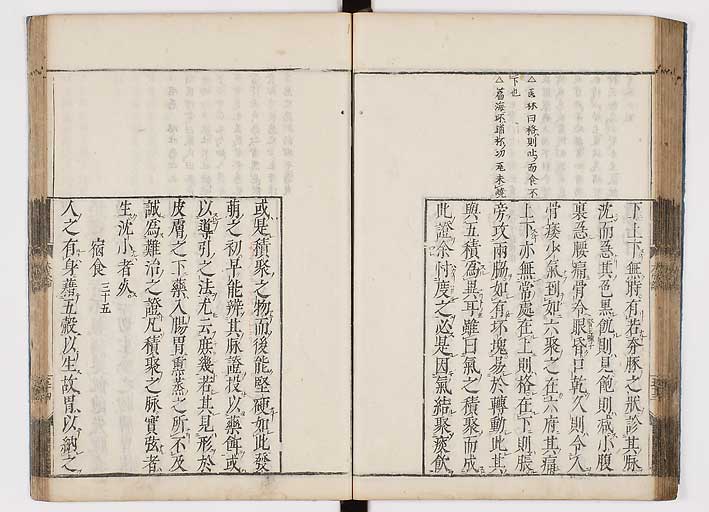 △医林曰格則吐而食不
下也
下上下無時有若奔豚之狀診其脉
沈而急其色黒飢則見飽則減小腹
裏急腰痛骨令眼昏口乾久則令人
骨痿少氣到如六聚之在六府其痛
上下亦無常處在上則格在下則脹
旁攻兩脇如有坏塊易於轉動此其
與五積爲異耳雖曰氣之積聚而成
此證余忖度之必是因氣結聚痰飲
或是積聚之物而後能堅硬如此發
萌之初早能辨其脉證投以藥餌或
以導引之法尤云庶幾若其見形於
皮膚之下藥入腸胃熏蒸之所不及
誠爲難治之證凡積聚之脉實弦者
生沈小者死
宿食 三十五
人之有身藉五穀以生故胃以納之